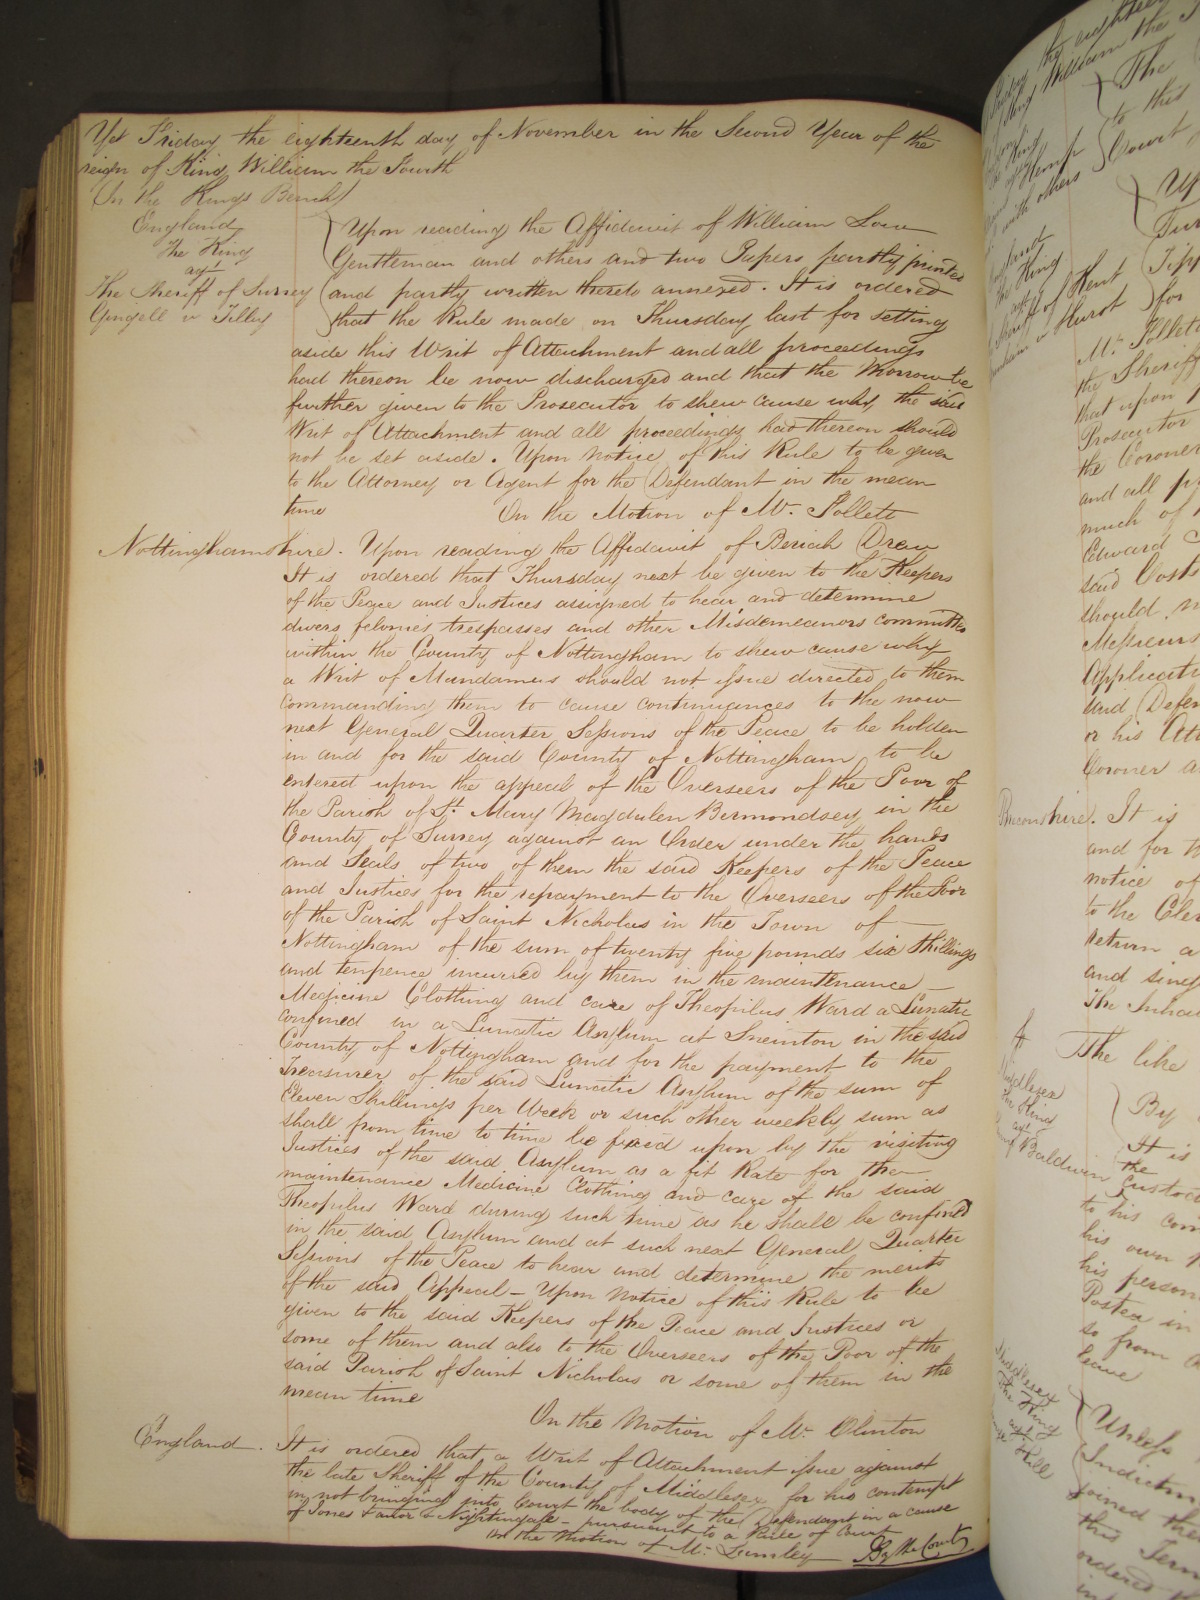 Yet Friday the eighteenth day of November in the Second Year of the
reign of King William the Fourth
In the Kings Bench
England
The King
agt
The Sheriff of Surrey
Gingell v Tilley
Upon reading the Affidavit of William Lowe
Gentleman and others and two Papers partly printed
and partly written thereto annexed. It is ordered
that the Rule made on Thursday last for setting
aside this Writ of Attachment and all proceedings
had thereon be now discharged and that the Morrow be
further given to the Prosecutor to shew cause why the said
Writ of Attachment and all proceedings had thereon should
not be set aside. Upon notice of this Rule to be given
to the Attorney or Agent for the Defendant in the mean
time On the Motion of Mr. Follett
Nottinghamshire. Upon reading the Affidavit of Beriah Drew
It is ordered that Thursday next be given to the Keepers
of the Peace and Justices assigned to hear and determine
divers felonies trespasses and other Misdemeanors committed
within the County of Nottingham to shew cause why
a Writ of Mandamus should not issue directed to them
commanding them to cause continuances to the now
next General Quarter Sessions of the Peace to be holden
in and for the said County of Nottingham to be
entered upon the appeal of the Overseers of the Poor of
the Parish of St. Mary Magdalen Bermondsey in the
County of Surrey against an Order under the hands
and Seals of two of them the said Keepers of the Peace
and Justices for the repayment to the Overseers of the Poor
of the Parish of Saint Nicholas in the Town of
Nottingham of the sum of twenty five pounds six shillings
and tenpence incurred by them in the maintenance
Medicine Clothing and care of Theophilus Ward a Lunatic
confined in a Lunatic Asylum at Sneinton in the said
County of Nottingham and for the payment to the
Treasurer of the said Lunatic Asylum of the sum of
Eleven Shillings per Week or such other weekly sum as
shall from time to time be fixed upon by the visiting
Justices of the said Asylum as a fit Rate for the
maintenance Medicine Clothing and care of the said
Theophilus Ward during such time as he shall be confined
in the said Asylum and at such next General Quarter
Sessions of the Peace to hear and determine the merits
of the said Appeal – Upon Notice of this Rule to be
given to the said Keepers of the Peace and Justices or
some of them and also to the Overseers of the Poor of the
said Parish of Saint Nicholas or some of them in the
mean time
On the Motion of Mr. Clinton
England. It is ordered that a Writ of Attachment issue against
the late Sheriff of the County of Middlesex for his contempt
in not bringing into Court the body of the Defendant in a cause
of Jones & anor v Nightingale – pursuant to a Rule of Court
On the Motion of Mr. Lumley By the Court
The
to this
Court
with others
The King
agt
Sheriff of Kent
v Hurst
for
Mr. Follett
the Sheriff
that upon
Prosecutor
the Coroner
and all
much of
Edward
said
should
Messieurs
Applicati
said Defen
or his
Coroner
It is
and for
notice of
to the Cler
return a
and sing
The Inha
The like
Middlesex
The King
agt
Baldwin
By
It is
the
Custod
to his com
his own
his person
Postea in
so from
leave
Middlesex
The King
agt
Hill
Unless
Indictm
joined the
this Term
ordered